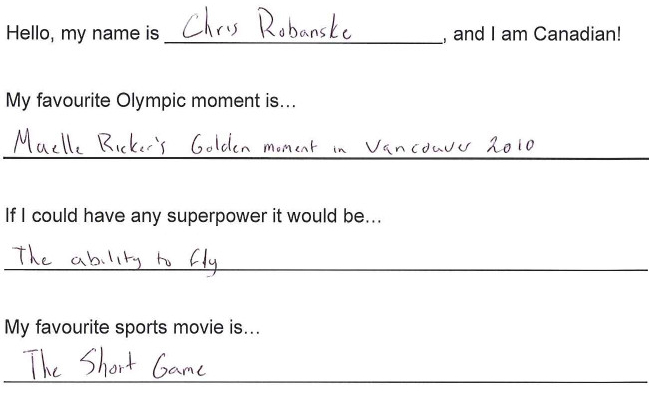 Hello, my name is Chris Robanske, and I am Canadian!
My favourite Olympic moment is...
Maelle Ricker's Golden moment in Vancouver 2010
If I could have any superpower it would be...
The ability to fly
My favourite sports movie is...
The Short Game